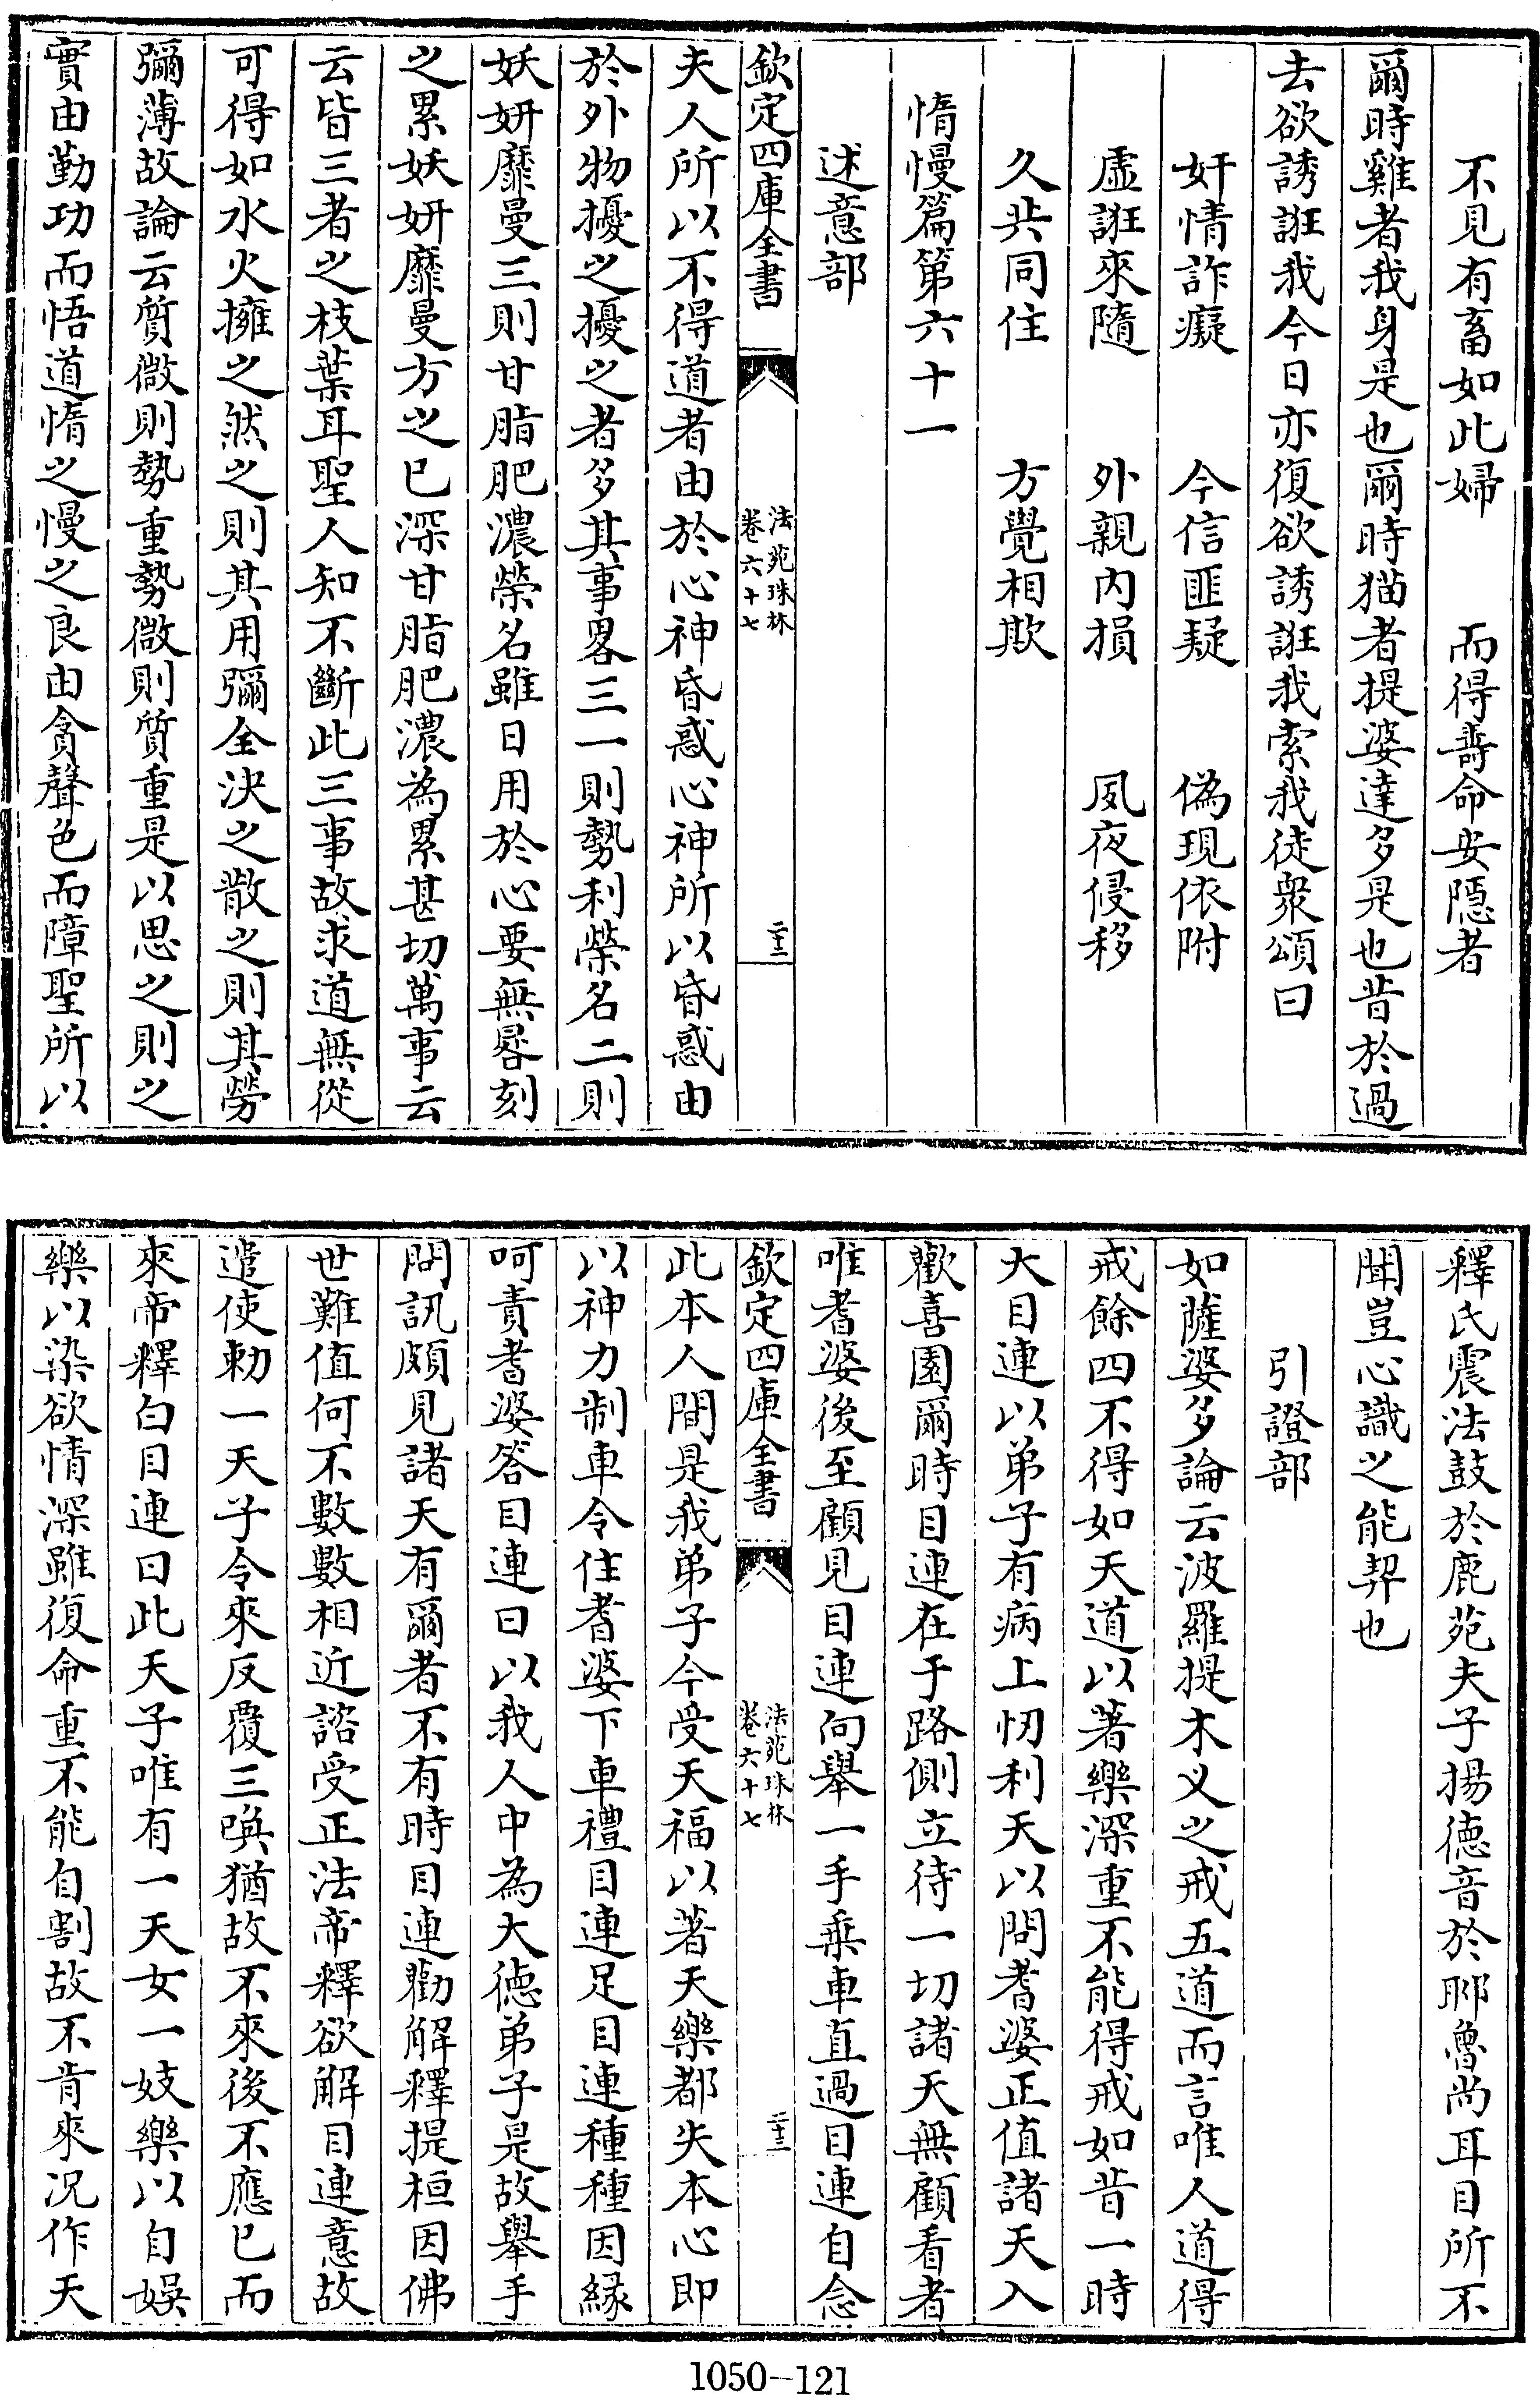 不見有畜如此婦　而得壽命安隱者
爾時雞者我身是也爾時猫者提婆達多是也昔於過
去欲誘誑我今日亦復欲誘誑我索我徒衆頌曰
奸情詐癡　今信匪疑　偽現依附
虛誑來隨　外親内損　夙夜侵移
久共同住　方覺相欺
惰慢篇第六十一
述意部
欽定四庫全書　法苑珠林卷六十七　二十二
夫人所以不得道者由於心神昏惑心神所以昏惑由
於外物擾之擾之者多其事畧三一則勢利榮名二則
妖妍靡曼三則甘脂肥濃榮名雖日用於心要無晷刻
之累妖妍靡曼方之已深甘脂肥濃為累甚切萬事云
云皆三者之枝葉耳聖人知不斷此三事故求道無從
可得如水火擁之然之則其用彌全決之散之則其勞
彌薄故論云質微則勢重勢微則質重是以思之則之
實由勤功而悟道惰之慢之良由貪聲色而障聖所以
釋氏震法鼓於鹿苑夫子揚德音於鄹魯尚耳目所不
聞豈心識之能契也
引證部
如薩婆多論云波羅提木义之戒五道而言唯人道得
戒餘四不得如天道以著樂深重不能得戒如昔一時
大目連以弟子有病上忉利天以問耆婆正值諸天入
歡喜園爾時目連在于路側立待一切諸天無顧看者
唯耆婆後至顧見目連向舉一手乗車直過目連自念
欽定四庫全書　法苑珠林卷六十七　二十三
此本人間是我弟子今受天福以著天樂都失本心即
以神力制車令住耆婆下車禮目連足目連種種因緣
呵責耆婆答目連曰以我人中為大德弟子是故舉手
問訊頗見諸天有爾者不有時目連勸解釋提桓因佛
世難值何不數數相近諮受正法帝釋欲解目連意故
遣使勅一天子令來反覆三喚猶故不來後不應已而
來帝釋白目連曰此天子唯有一天女一妓樂以自娛
樂以染欲情深雖復命重不能自割故不肯來况作天
1050—121